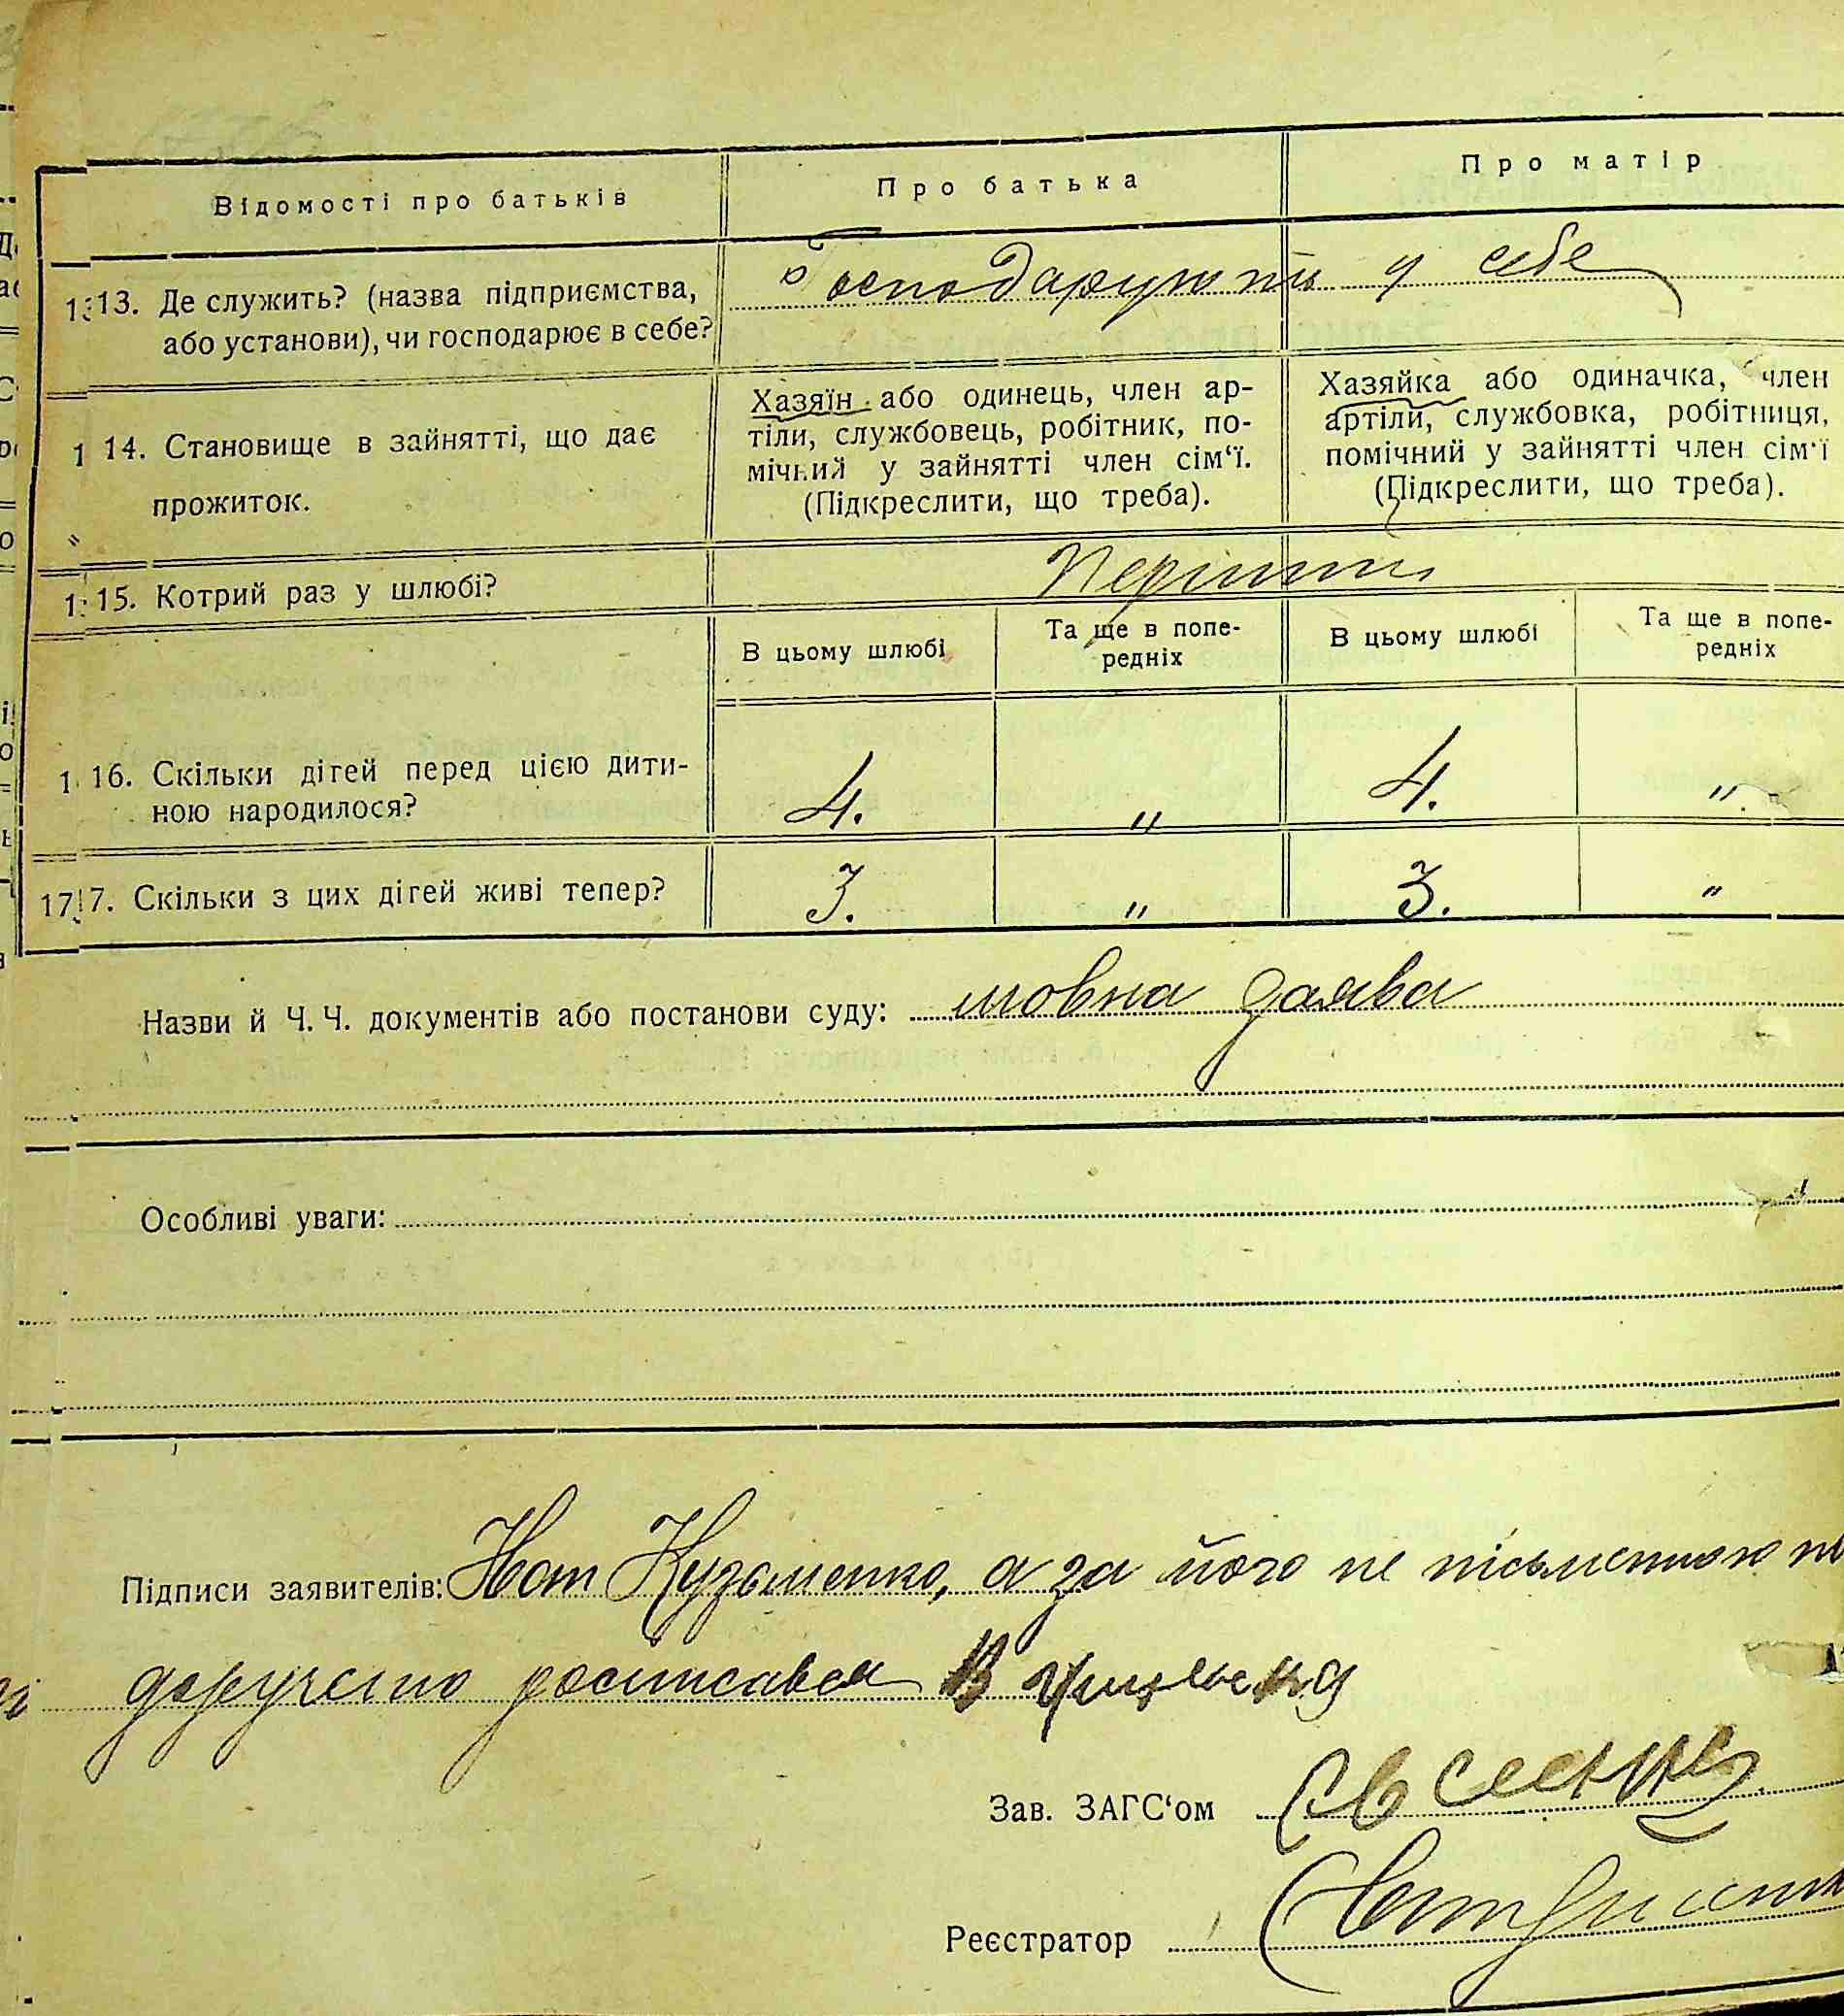 Відомості про батьків
Про батька
Про матір
13. Де служить? (назва підприємства,
або установи), чи господарює в себе?
Господарують у себе
14. Становище в зайнятті, що дає
прожиток.
Хазяїн або одинець, член ар-
тіли, службовець, робітник, по-
мічний у зайнятті член сім‘ї.
(Підкреслити, що треба).
Хазяйка або одиначка, член
артіли, службовка, робітниця,
помічний у зайнятті член сім‘ї
(Підкреслити, що треба).
15. Котрий раз у шлюбі?
В цьому шлюбі
Та ще в попе-
редніх
В цьому шлюбі
Та ще в попе-
редніх
16. Скільки дітей перед цією дити-
ною народилося?
4. " 4. "
17. Скільки з цих дітей живі тепер?
3. " 3. "
Назви й Ч. Ч. документів або постанови суду: мовна заява
Особливі уваги:
Підписи заявителів: Кузьменко, а за його не письменного
росписався В
Зав. ЗАГС‘ом
Реєстратор